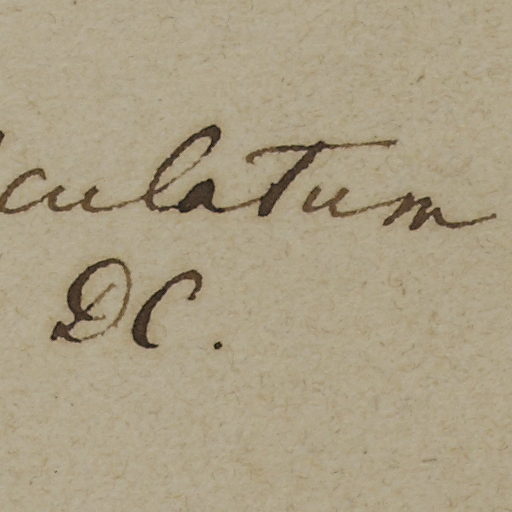 culatum
DC.